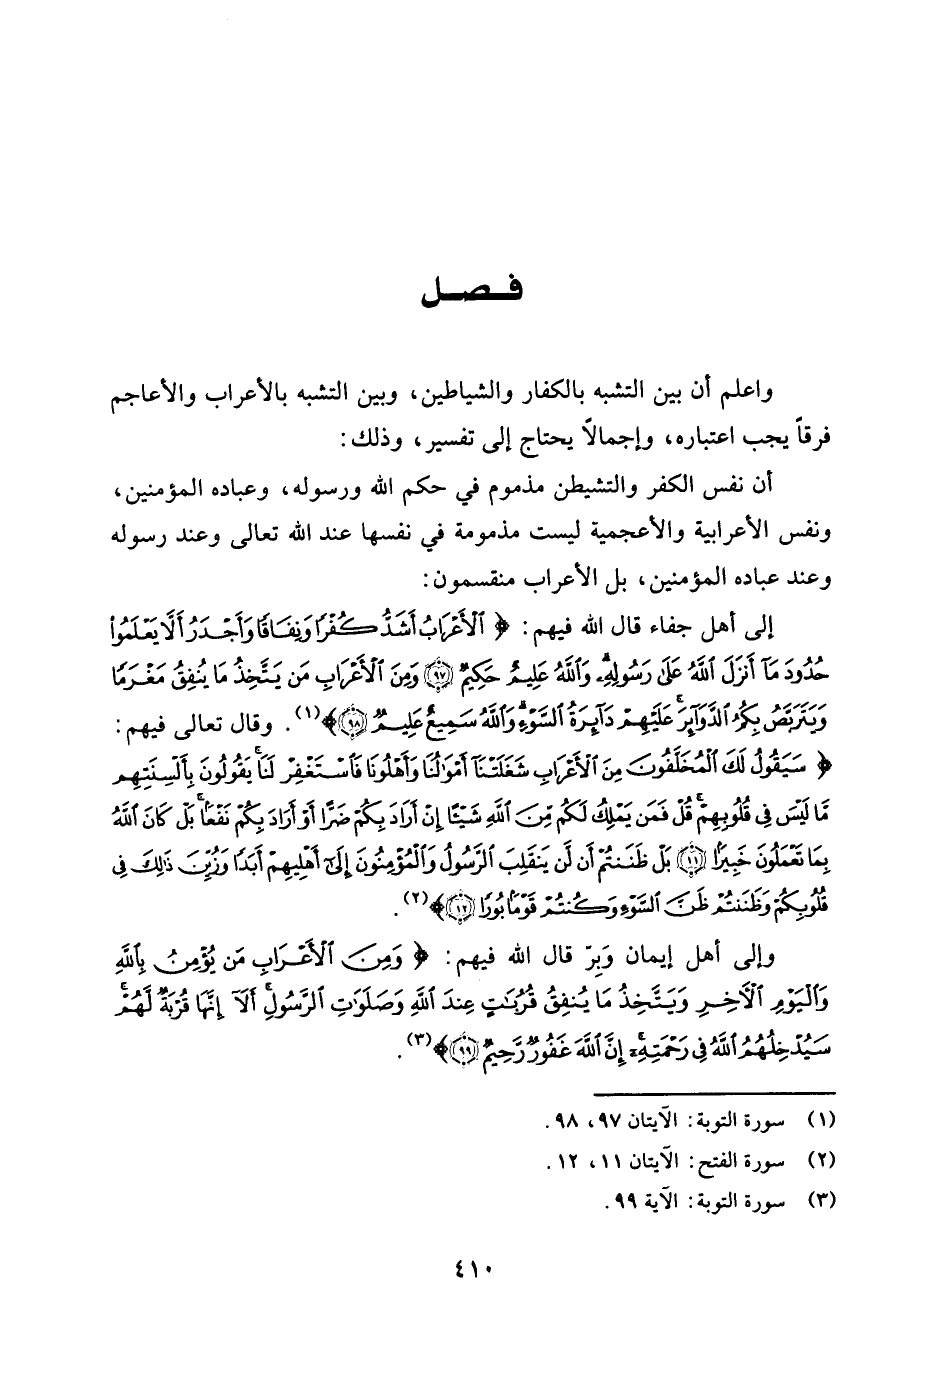 فـصـل
واعلم أن بين التشبه بالكفار والشياطين، وبين التشبه بالأعراب والأعاجم
فرقاً يجب اعتباره، وإجمالاً يحتاج إلى تفسير، وذلك:
أن نفس الكفر والتشيطن مذموم في حكم الله ورسوله، وعباده المؤمنين،
ونفس الأعرابية والأعجمية ليست مذمومة في نفسها عند الله تعالى وعند رسوله
وعند عباده المؤمنين، بل الأعراب منقسمون:
إلى أهل جفاء قال الله فيهم: ﴿ ٱلْأَعْرَابُ أَشَدُّ كُفْرًا وَنِفَاقًا وَأَجْدَرُ أَلَّا يَعْلَمُوا۟
حُدُودَ مَآ أَنزَلَ ٱللَّهُ عَلَىٰ رَسُولِهِۦۗ وَٱللَّهُ عَلِيمٌ حَكِيمٌ ﴿٩٧﴾ وَمِنَ ٱلْأَعْرَابِ مَن يَتَّخِذُ مَا يُنفِقُ مَغْرَمًا
وَيَتَرَبَّصُ بِكُمُ ٱلدَّوَآئِرَۚ عَلَيْهِمْ دَآئِرَةُ ٱلسَّوْءِۗ وَٱللَّهُ سَمِيعٌ عَلِيمٌ ﴿٩٨﴾﴾(١). وقال تعالى فيهم:
﴿ سَيَقُولُ لَكَ ٱلْمُخَلَّفُونَ مِنَ ٱلْأَعْرَابِ شَغَلَتْنَآ أَمْوَٰلُنَا وَأَهْلُونَا فَٱسْتَغْفِرْ لَنَاۚ يَقُولُونَ بِأَلْسِنَتِهِم
مَّا لَيْسَ فِى قُلُوبِهِمْۚ قُلْ فَمَن يَمْلِكُ لَكُم مِّنَ ٱللَّهِ شَيْـًٔا إِنْ أَرَادَ بِكُمْ ضَرًّا أَوْ أَرَادَ بِكُمْ نَفْعًۢاۚ بَلْ كَانَ ٱللَّهُ
بِمَا تَعْمَلُونَ خَبِيرًۢا ﴿١١﴾ بَلْ ظَنَنتُمْ أَن لَّن يَنقَلِبَ ٱلرَّسُولُ وَٱلْمُؤْمِنُونَ إِلَىٰٓ أَهْلِيهِمْ أَبَدًا وَزُيِّنَ ذَٰلِكَ فِى
قُلُوبِكُمْ وَظَنَنتُمْ ظَنَّ ٱلسَّوْءِ وَكُنتُمْ قَوْمًۢا بُورًا ﴿١٢﴾﴾(٢).
وإلى أهل إيمان وَبِرّ قال الله فيهم: ﴿ وَمِنَ ٱلْأَعْرَابِ مَن يُؤْمِنُ بِٱللَّهِ
وَٱلْيَوْمِ ٱلْـَٔاخِرِ وَيَتَّخِذُ مَا يُنفِقُ قُرُبَـٰتٍ عِندَ ٱللَّهِ وَصَلَوَٰتِ ٱلرَّسُولِۚ أَلَآ إِنَّهَا قُرْبَةٌ لَّهُمْۚ
سَيُدْخِلُهُمُ ٱللَّهُ فِى رَحْمَتِهِۦٓۚ إِنَّ ٱللَّهَ غَفُورٌ رَّحِيمٌ ﴿٩٩﴾﴾(٣).
(١) سورة التوبة: الآيتان ٩٧، ٩٨.
(٢) سورة الفتح: الآيتان ١١، ١٢.
(٣) سورة التوبة: الآية ٩٩.
٤١٠